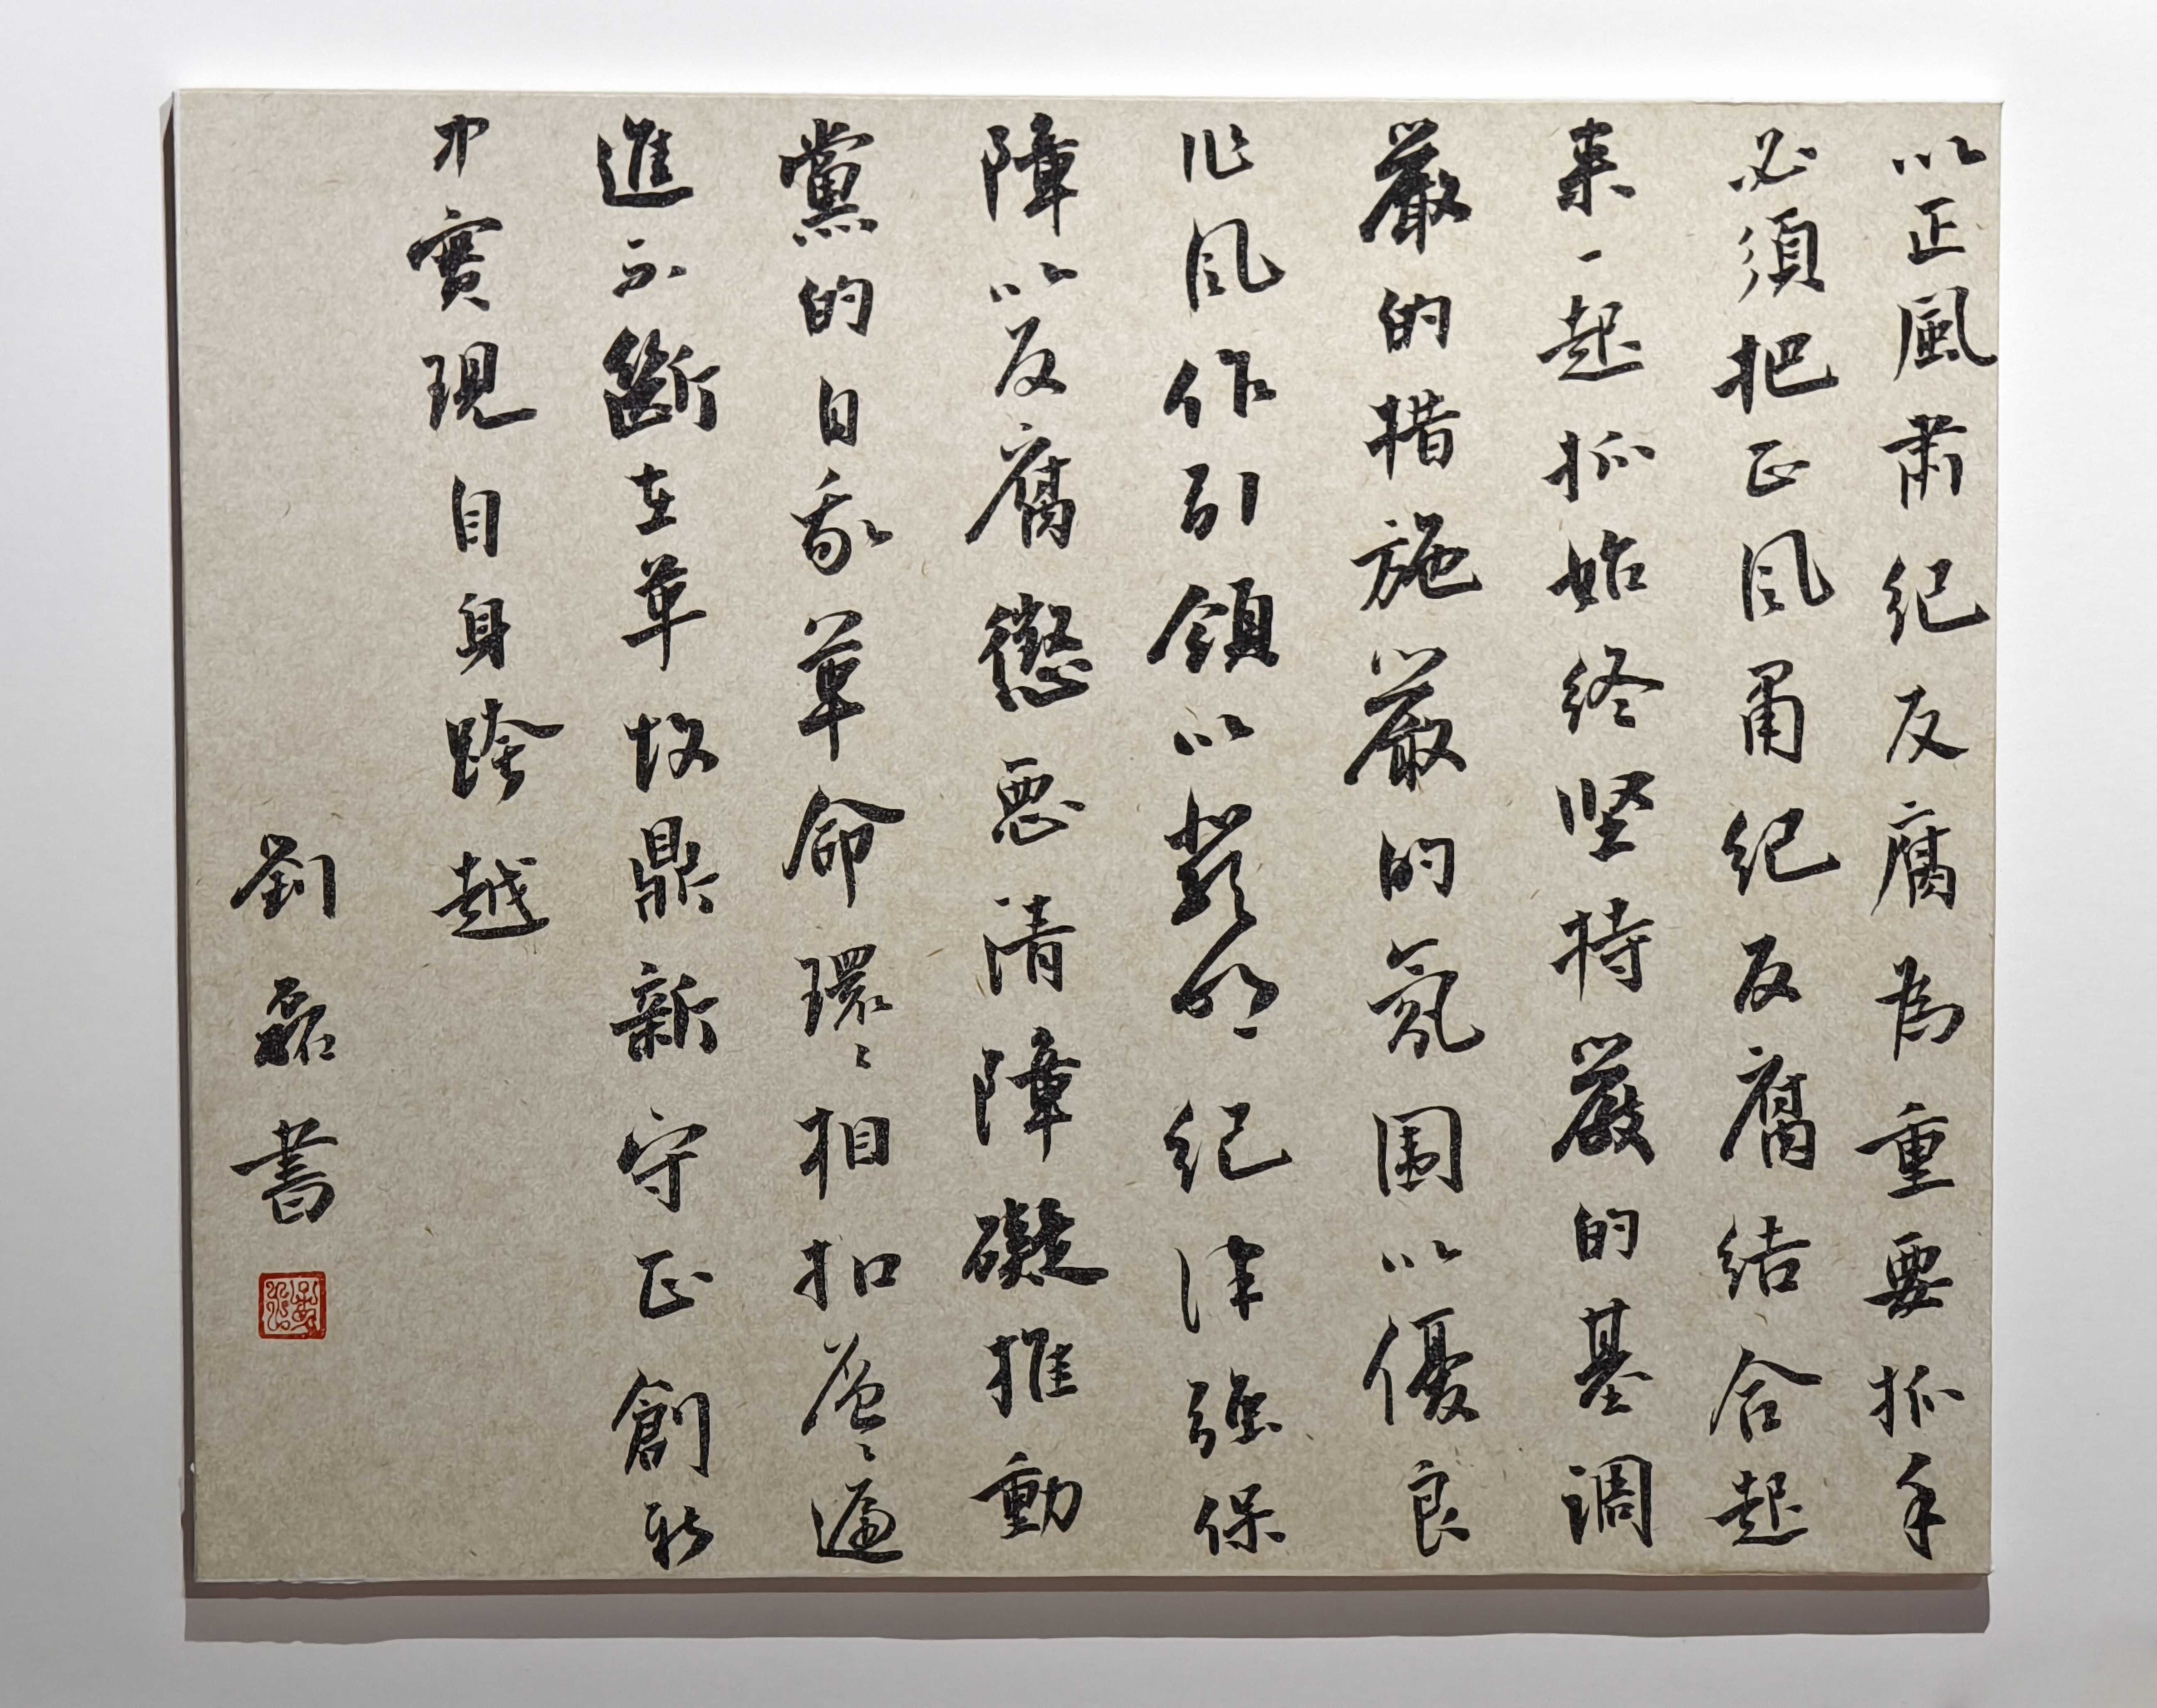 以正風肃纪反腐為重要抓手
必須把正风肅纪反腐结合起
来一起抓始终坚持嚴的基调
嚴的措施嚴的氛围以優良
作风作引領以嚴明纪律强保
障以反腐懲惡清障礙推動
黨的自我革命環〻相扣層〻遞
進不斷在革故鼎新守正創新
中實現自身跨越
劉磊書